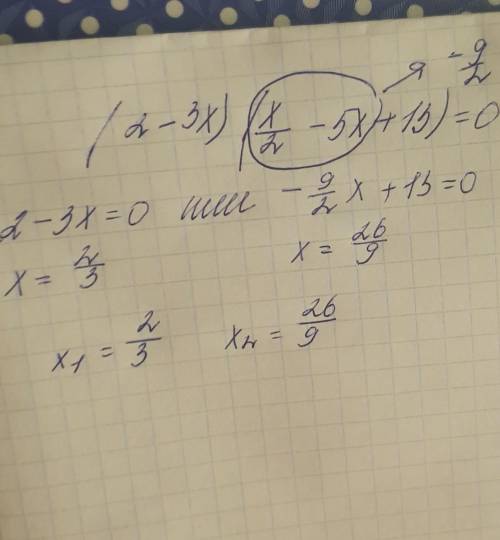 → -9/2
(2 - 3x) (x/2 - 5x) + 13) = 0
2 - 3x = 0 или -9/2 x + 13 = 0
x = 2/3 x = 26/9
x₁ = 2/3 x₂ = 26/9